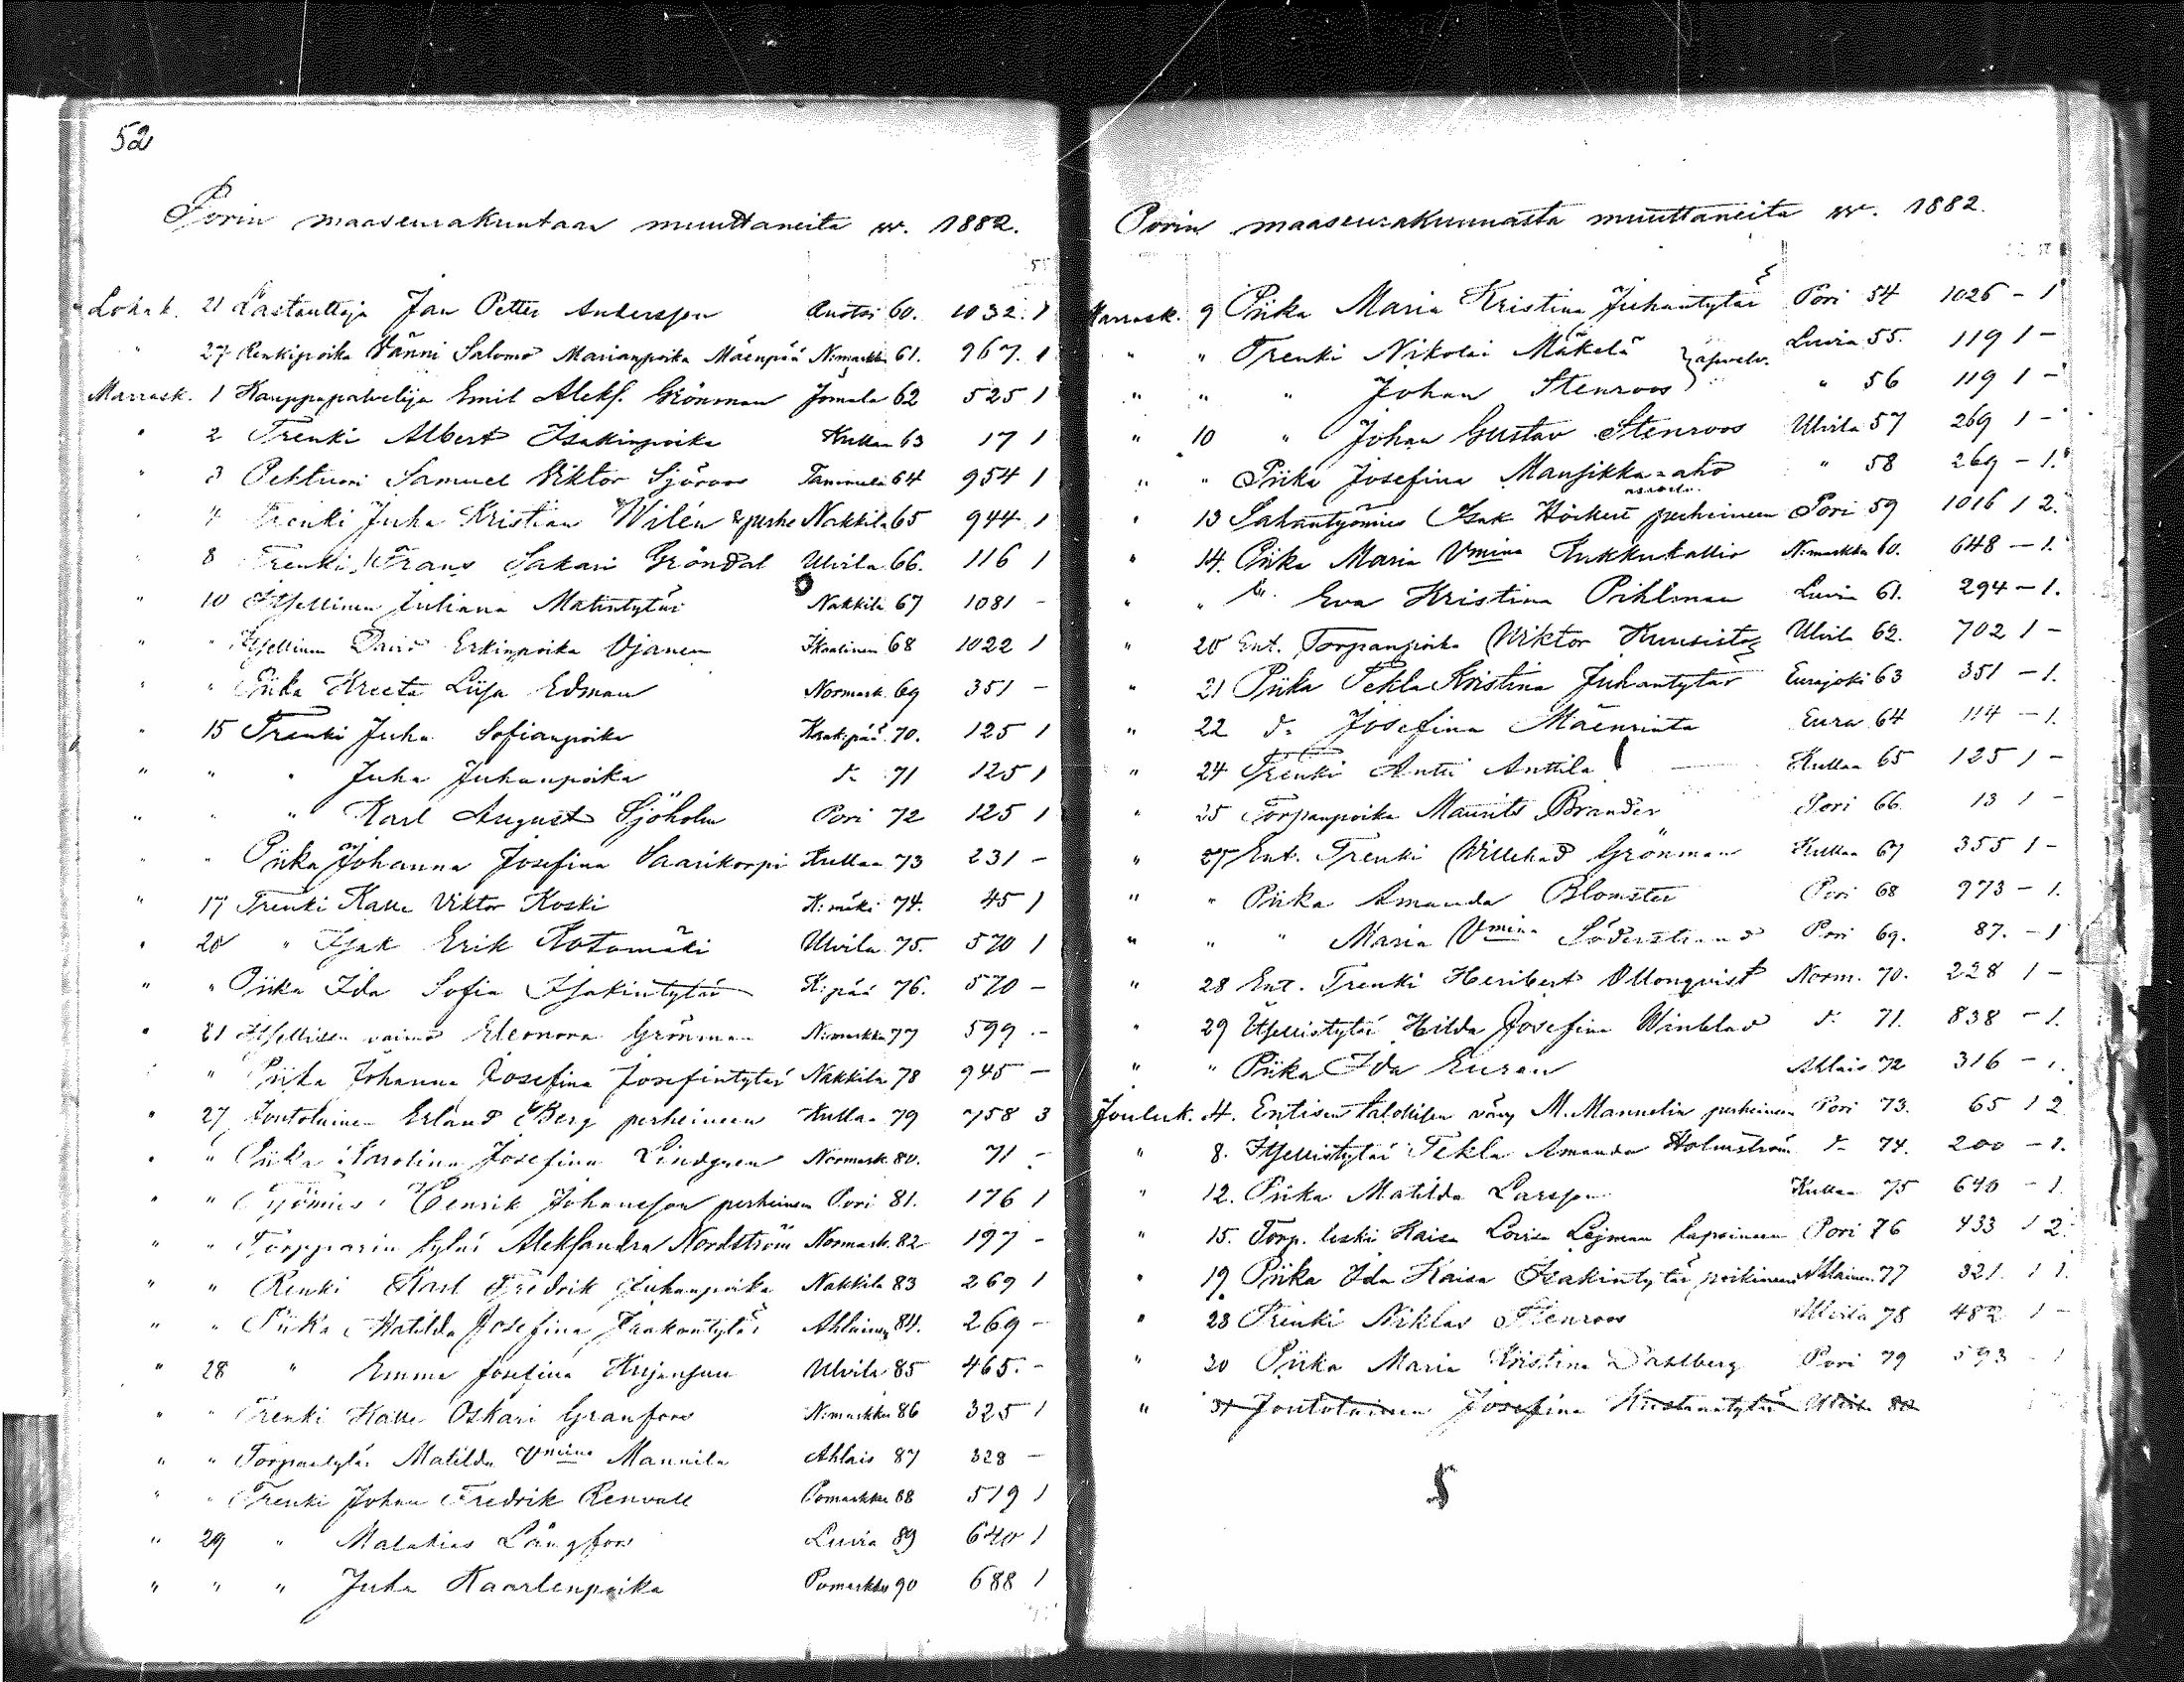 52
Porin maaseurakuntaan muuttaneita w. 1882.
Lokak. 21 Lastauttaja Jan Petter Andersson 60. 1032. 1
" 27 Renkipoika Vänni Salomo Marianpoika Mäenpää N:markku 61. 967. 1
Marrask. 1 Kauppapalvelija Emil Aleks. Grönman Jomala 62 525 1
" 2 Trenki Albert Isakinpoika Kullaa 63 17 1
" 3 Samuel Viktor Sjöroos Tammela 64 954 1
" 4 Trenki Juha Kristian Wilén & perhe Nakkila 65 944 1
" 8 Trenki Frans Sakari Gröndal Ulvila 66. 116 1
" 10 Itsellinen Juliana Matintytär Nakkila 67 1081 -
" " Itsellinen David Erkinpoika Ojanen Ikaalinen 68 1022 1
" " Piika Kreeta Liisa Edman Normark. 69 351 -
" 15 Trenki Juha Sofianpoika Kankipää 70. 125 1
" " " Juha Juhanpoika d:o 71 125 1
" " " Karl August Sjöholm Pori 72 125 1
" " Piika Johanna Josefina Saarikorpi Kullaa 73 231 -
" 17 Trenki Kalle Viktor Koski K:mäki 74. 45 1
" 20 " Isak Erik Kotamäki Ulvila 75. 570 1
" " Piika Ida Sofia Isakintytär K:pää 76. 570 -
" 21 Itsellisen vaimo Eleonora Grönman N:markku 77 599 -
" " Piika Johanna Josefina Josefintytär Nakkila 78 945 -
" 27 Joutolainen Erland Berg perheineen Kullaa 79 758 3
" " Piika Karolina Josefina Lindgren Normark 80. 71 -
" " Työmies Henrik Johansson perheineen Pori 81. 176 1
" " Torpparin tytär Aleksandra Nordström Normark. 82 197 -
" " Renki Karl Fredrik Juhanpoika Nakkila 83 269 1
" " Piika Matilda Josefina Jaakontytär Ahlainen 84. 269 -
" 28 " Emma Josefina Kujansuu Ulvila 85 465. -
" " Trenki Kalle Oskari Granfors N:markku 86 325 1
" " Torpantytär Matilda Vmina Mannila Ahlais 87 328 -
" " Trenki Johan Fredrik Renvall Pomarkku 88 519 1
" 29 " Malakias Långfors Luvia 89 640 1
" " " Juha Kaarlenpoika Pomarkku 90 688 1
Porin maaseurakunnasta muuttaneita w. 1882.
Marrask. 9 Piika Maria Kristina Juhantytär Pori 54 1026 - 1
" " Trenki Nikolai Mäkelä Luvia 55. 119 1 -
" " " Johan Stenroos " 56 119 1 -
" 10 " Johan Gustav Stenroos Ulvila 57 269 1 -
" " Piika Josefina Mansikka-aho " 58 269 - 1.
" 13 Sahantyömies Isak Höckert perheineen Pori 59 1016 1 2.
" 14. Piika Maria Vmina Kukkukallio N:markku 60. 648 - 1.
" " d:o Eva Kristina Pihlman Luvia 61. 294 - 1.
" 20 Ent. Torpanpoika Wiktor Kuusisto Ulvila 62. 702 1 -
" 21 Piika Tekla Kristina Juhantytär Eurajoki 63 351 - 1.
" 22 d:o Josefina Mäenrinta Eura 64 114 - 1.
" 24 Trenki Antti Anttila Kullaa 65 125 1 -
" 25 Torpanpoika Maurits Brander Pori 66. 13 1 -
" 27 Ent. Trenki Willehad Grönman Kullaa 67 355 1 -
" " Piika Amanda Blomster Pori 68 973 - 1.
" " " Maria Vmina Söderstrand Pori 69. 87. - 1
" 28 Ent. Trenki Heribert Ollonqvist Norm. 70. 228 1 -
" 29 Itsellistytär Hilda Josefina Winblad d:o 71. 838 - 1.
" " Piika Ida Euren Ahlais 72 316 - 1.
Jouluk. 4. Entisen talollisen vävy M. Mannelin perheineen Pori 73. 65 1 2
" 8. Itsellistytär Tekla Amanda Holmström d:o 74. 200 - 1.
" 12. Piika Matilda Larsson Kullaa 75 640 - 1.
" 15. Torp. leski Kaisa Lovisa Lejman lapsineen Pori 76 433 1 2.
" 19. Piika Ida Kaisa Isakintytär poikineen Ahlainen 77 321. 1 1.
" 28 Trenki Niklas Stenroos Ulvila 78 482 1 -
" 30 Piika Maria Kristina Dahlberg Pori 79 593 - 1
" 31 Joutolainen Josefina Kustaantytär Ulvila 80